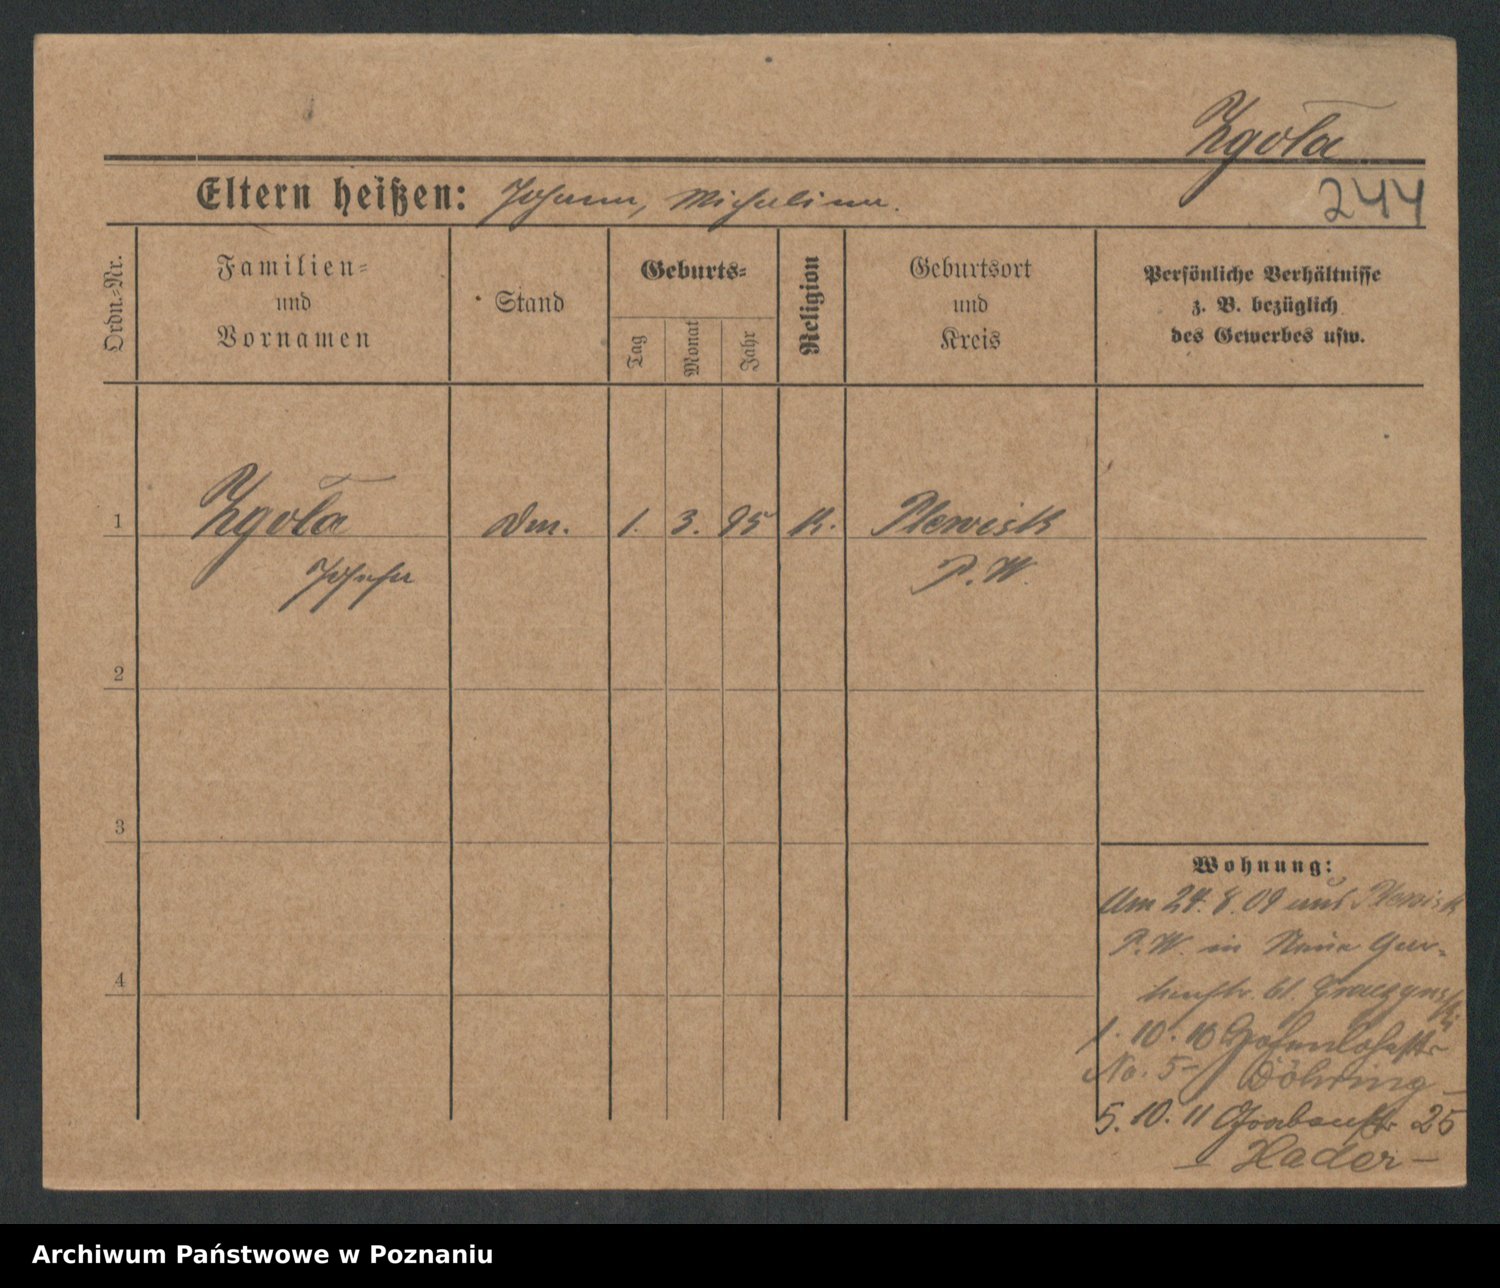 Zgoła
Eltern heißen: Johann, Michalina.
244
Ordn.=Nr.
Familien=
und
Vornamen
Stand
Geburts=
Tag
Monat
Jahr
Religion
Geburtsort
und
Kreis
Persönliche Verhältnisse
z. B. bezüglich
des Gewerbes usw.
1
Zgoła
Josefa
1. 3. 95 K. Plewisk
P. W.
2
3
4
Wohnung:
Am 24. 8. 09 aus Plewisk
P. W. in Neue Gar-
tenstr. 61.
1. 10. 10 Hohenlohestr
No. 5- Döhring -
5. 10. 11 Grabenstr. 25
- Hader -
Archiwum Państwowe w Poznaniu